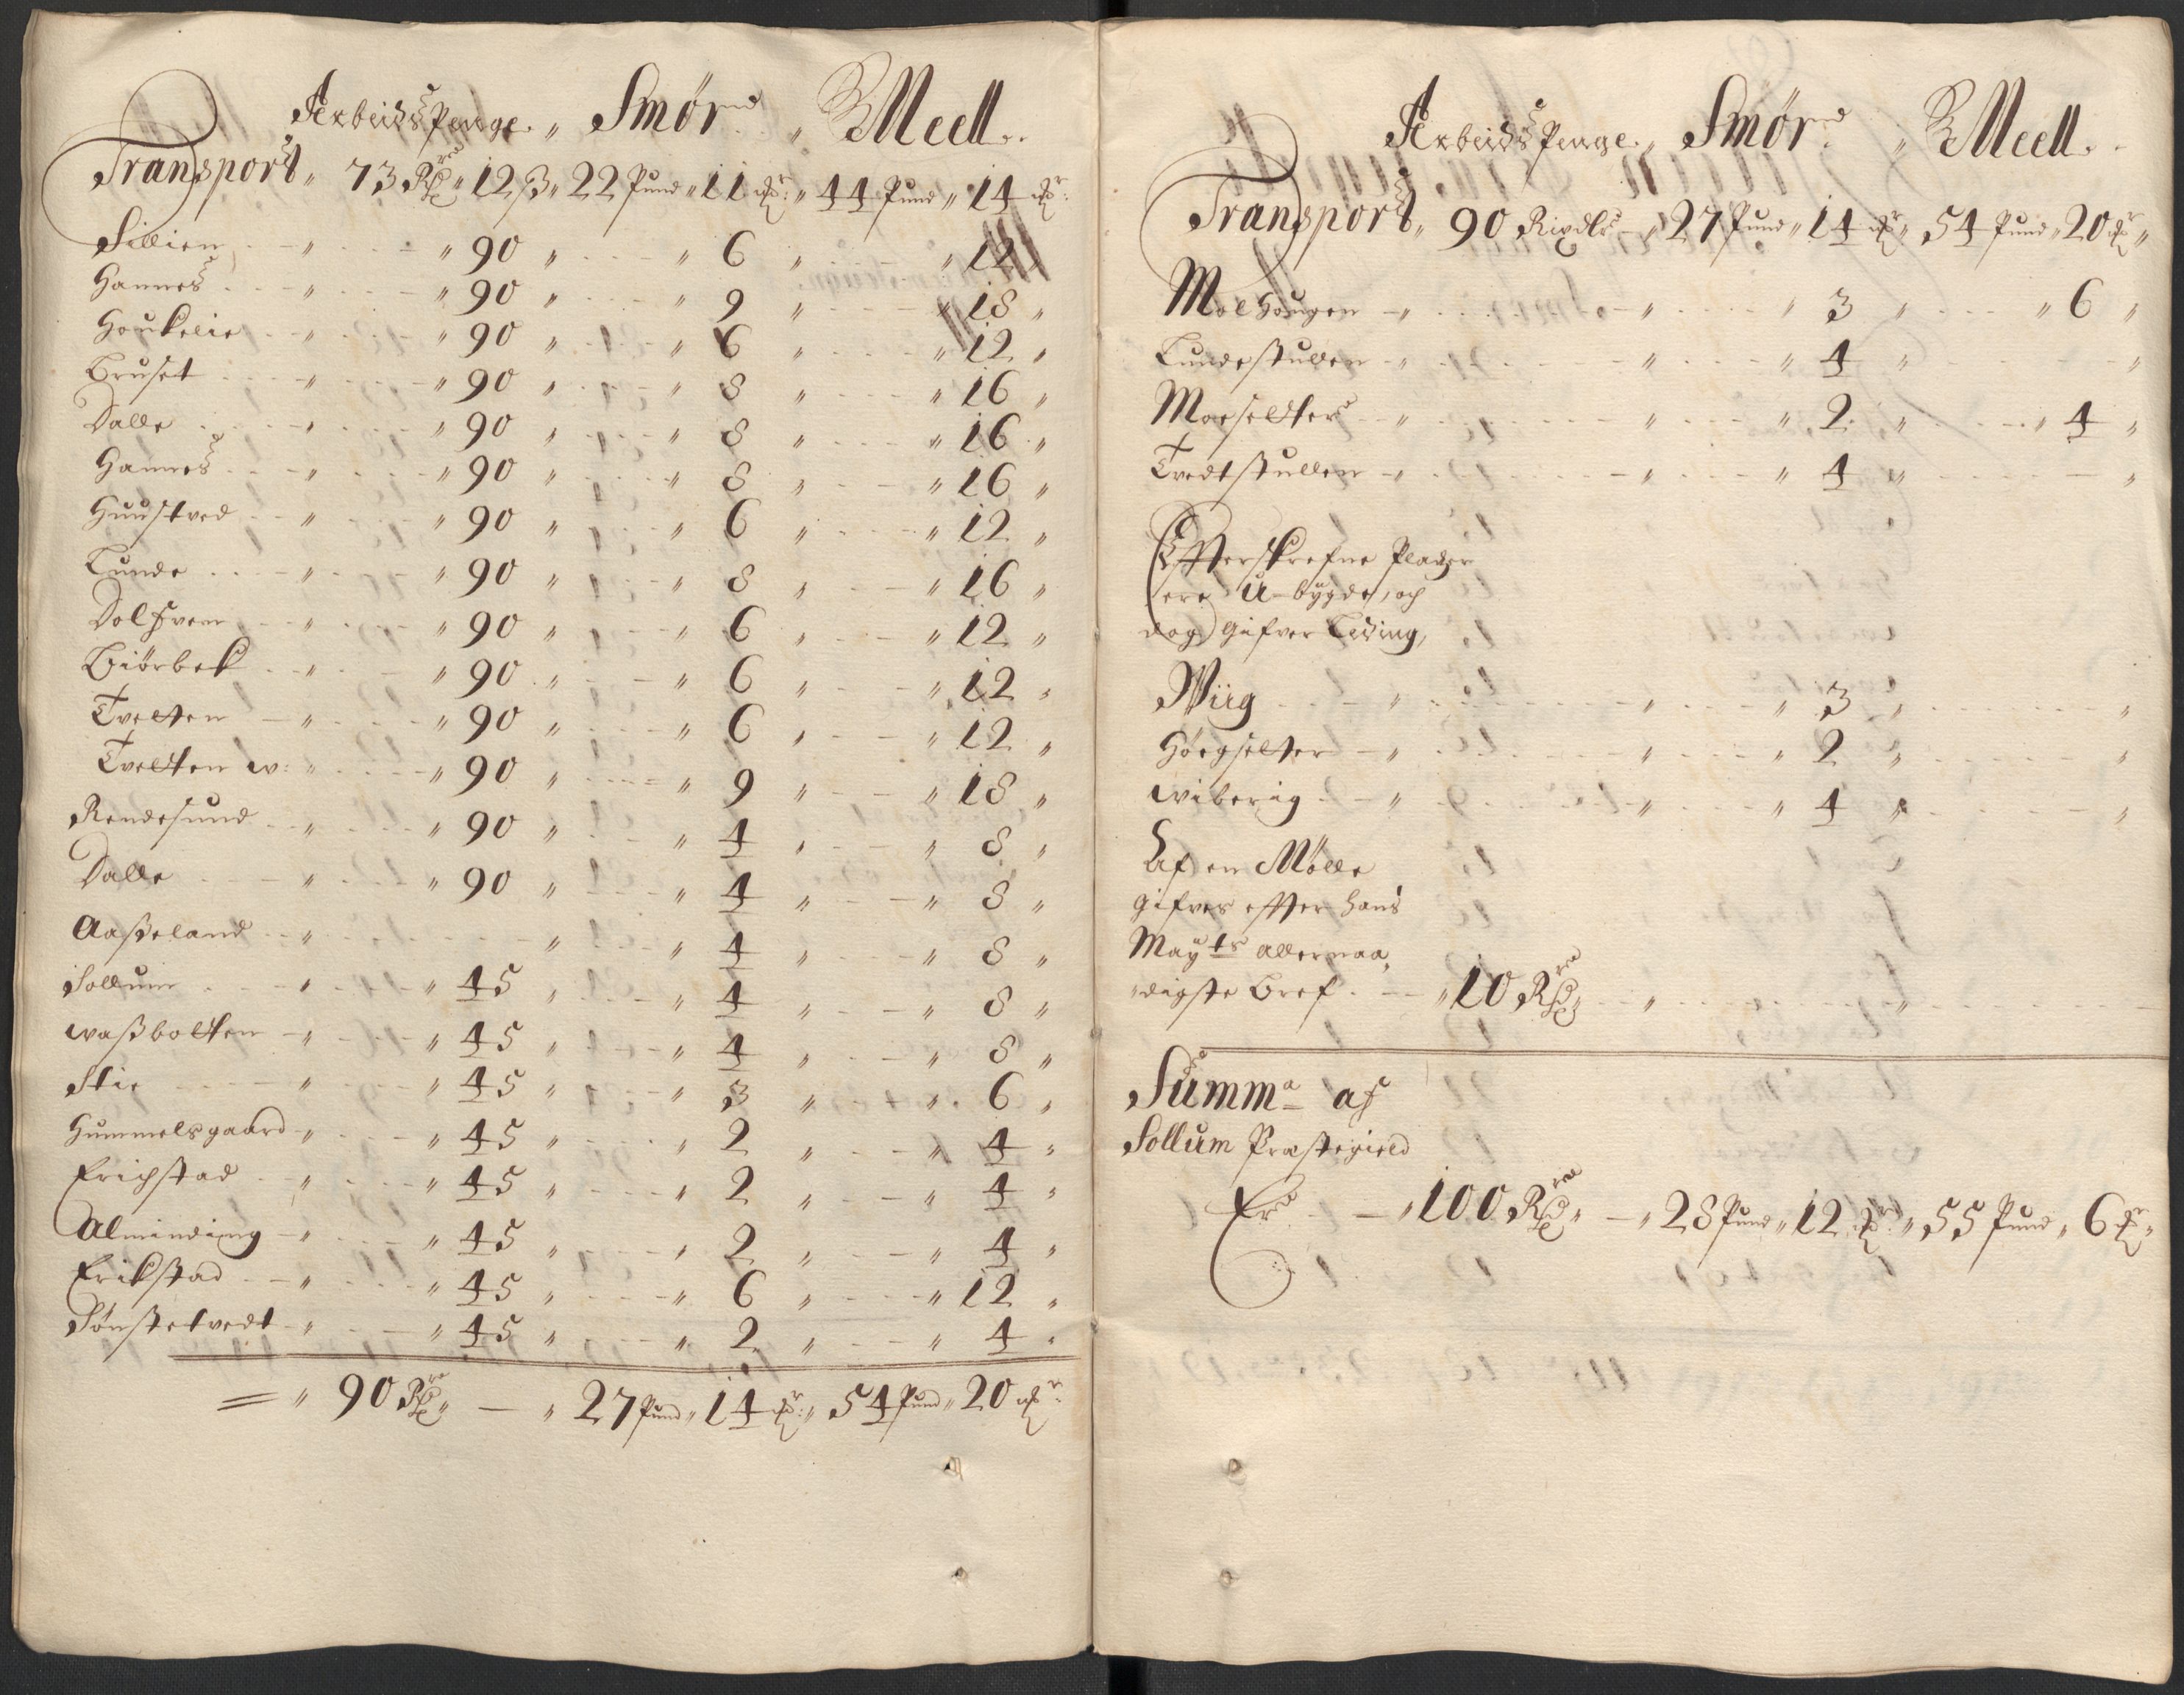 Arbeids Penge. „ Smør „ Meell.
Transport „ 73 Rdr „ 12 ß „ 22 Pund „ 11 mkr: „ 44 Pund „ 14 mkr:
Sillien „ „ 90 „ „ 6 „ „ 12 „
Hannes „ „ 90 „ „ 9 „ „ 18 „
Houkelie „ „ 90 „ „ 6 „ „ 12 „
Bruset „ „ 90 „ „ 8 „ „ 16 „
Dalle „ „ 90 „ „ 8 „ „ 16 „
Hannes „ „ 90 „ „ 8 „ „ 16 „
Huustved „ „ 90 „ „ 6 „ „ 12 „
Lunde „ „ 90 „ „ 8 „ „ 16 „
Dolfven „ „ 90 „ „ 6 „ „ 12 „
Biörbek „ „ 90 „ „ 6 „ „ 12 „
Tvetten „ „ 90 „ „ 6 „ „ 12 „
Tvetten w: „ „ 90 „ „ 9 „ „ 18 „
Rendesund „ „ 90 „ „ 4 „ „ 8 „
Dalle „ „ 90 „ „ 4 „ „ 8 „
Aaßeland „ „ „ 4 „ „ 8 „
Sollum „ „ 45 „ „ 4 „ „ 8 „
waßbotten „ „ 45 „ „ 4 „ „ 8 „
Stie „ „ 45 „ „ 3 „ „ 6 „
Hummelsgaard „ „ 45 „ „ 2 „ „ 4 „
Erichstad „ „ 45 „ „ 2 „ „ 4 „
Alminding „ „ 45 „ „ 2 „ „ 4 „
Erikstad „ „ 45 „ „ 6 „ „ 12 „
Sönstetvedt „ „ 45 „ „ 2 „ „ 4 „
= „ 90 Rdr „ — „ 27 Pund „ 14 mkr: „ 54 Pund „ 20 mkr:
Arbeids Penge. „ Smør „ Meell.
Transport „ 90 Rixdlr — „ 27 Pund „ 14 mkr „ 54 Pund „ 20 mkr „
Molhougen „ „ „ 3 „ „ 6 „
Lundestullen „ „ „ 4 „ „
Moeseltter „ „ „ 2 „ „ 4 „
Tvedtstullen „ „ „ 4 „ „
Effterskrefne Pladzer
ere U-bÿgde, och
dog gifver Leding,
Wiig „ „ „ 3 „ „
Höegseltter „ „ „ 2 „ „
wiberig „ „ „ 4 „ „
Af en Mölle
gifves effter hans
Maÿts allernaa„
„digste Bref. „ 10 Rdr „ „ „
Summa af
Sollum Præstegield
Er — „ 100 Rdr „ — „ 28 Pund „ 12 mkr „ 55 Pund „ 6 mkr „